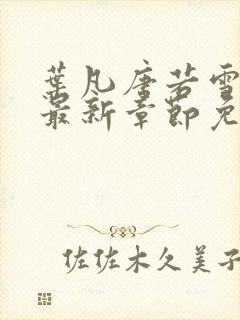 葉凡唐若雪
最新章節免
佐佐木久美子